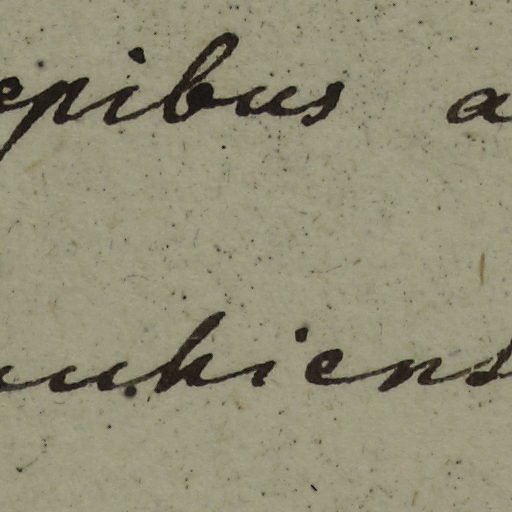 epibus a
uukiens